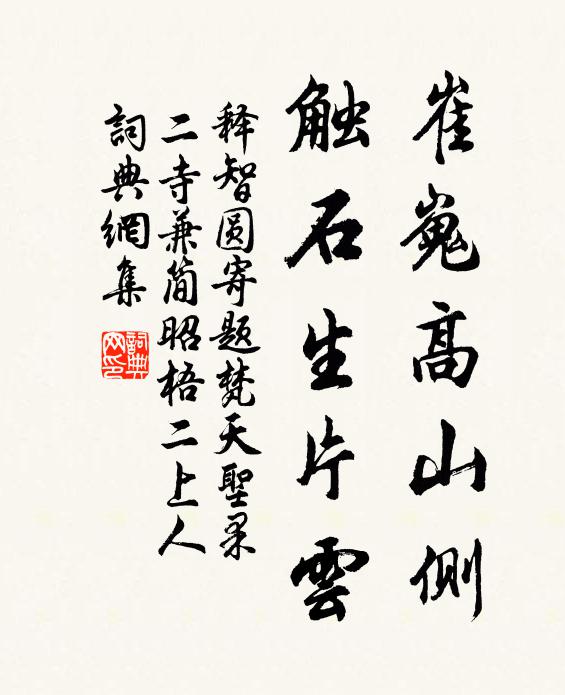 崔嵬高山側
触石生片雲
释智圆寄题梵天聖果
二寺兼简昭梧二上人
詞典網集
詞典網印